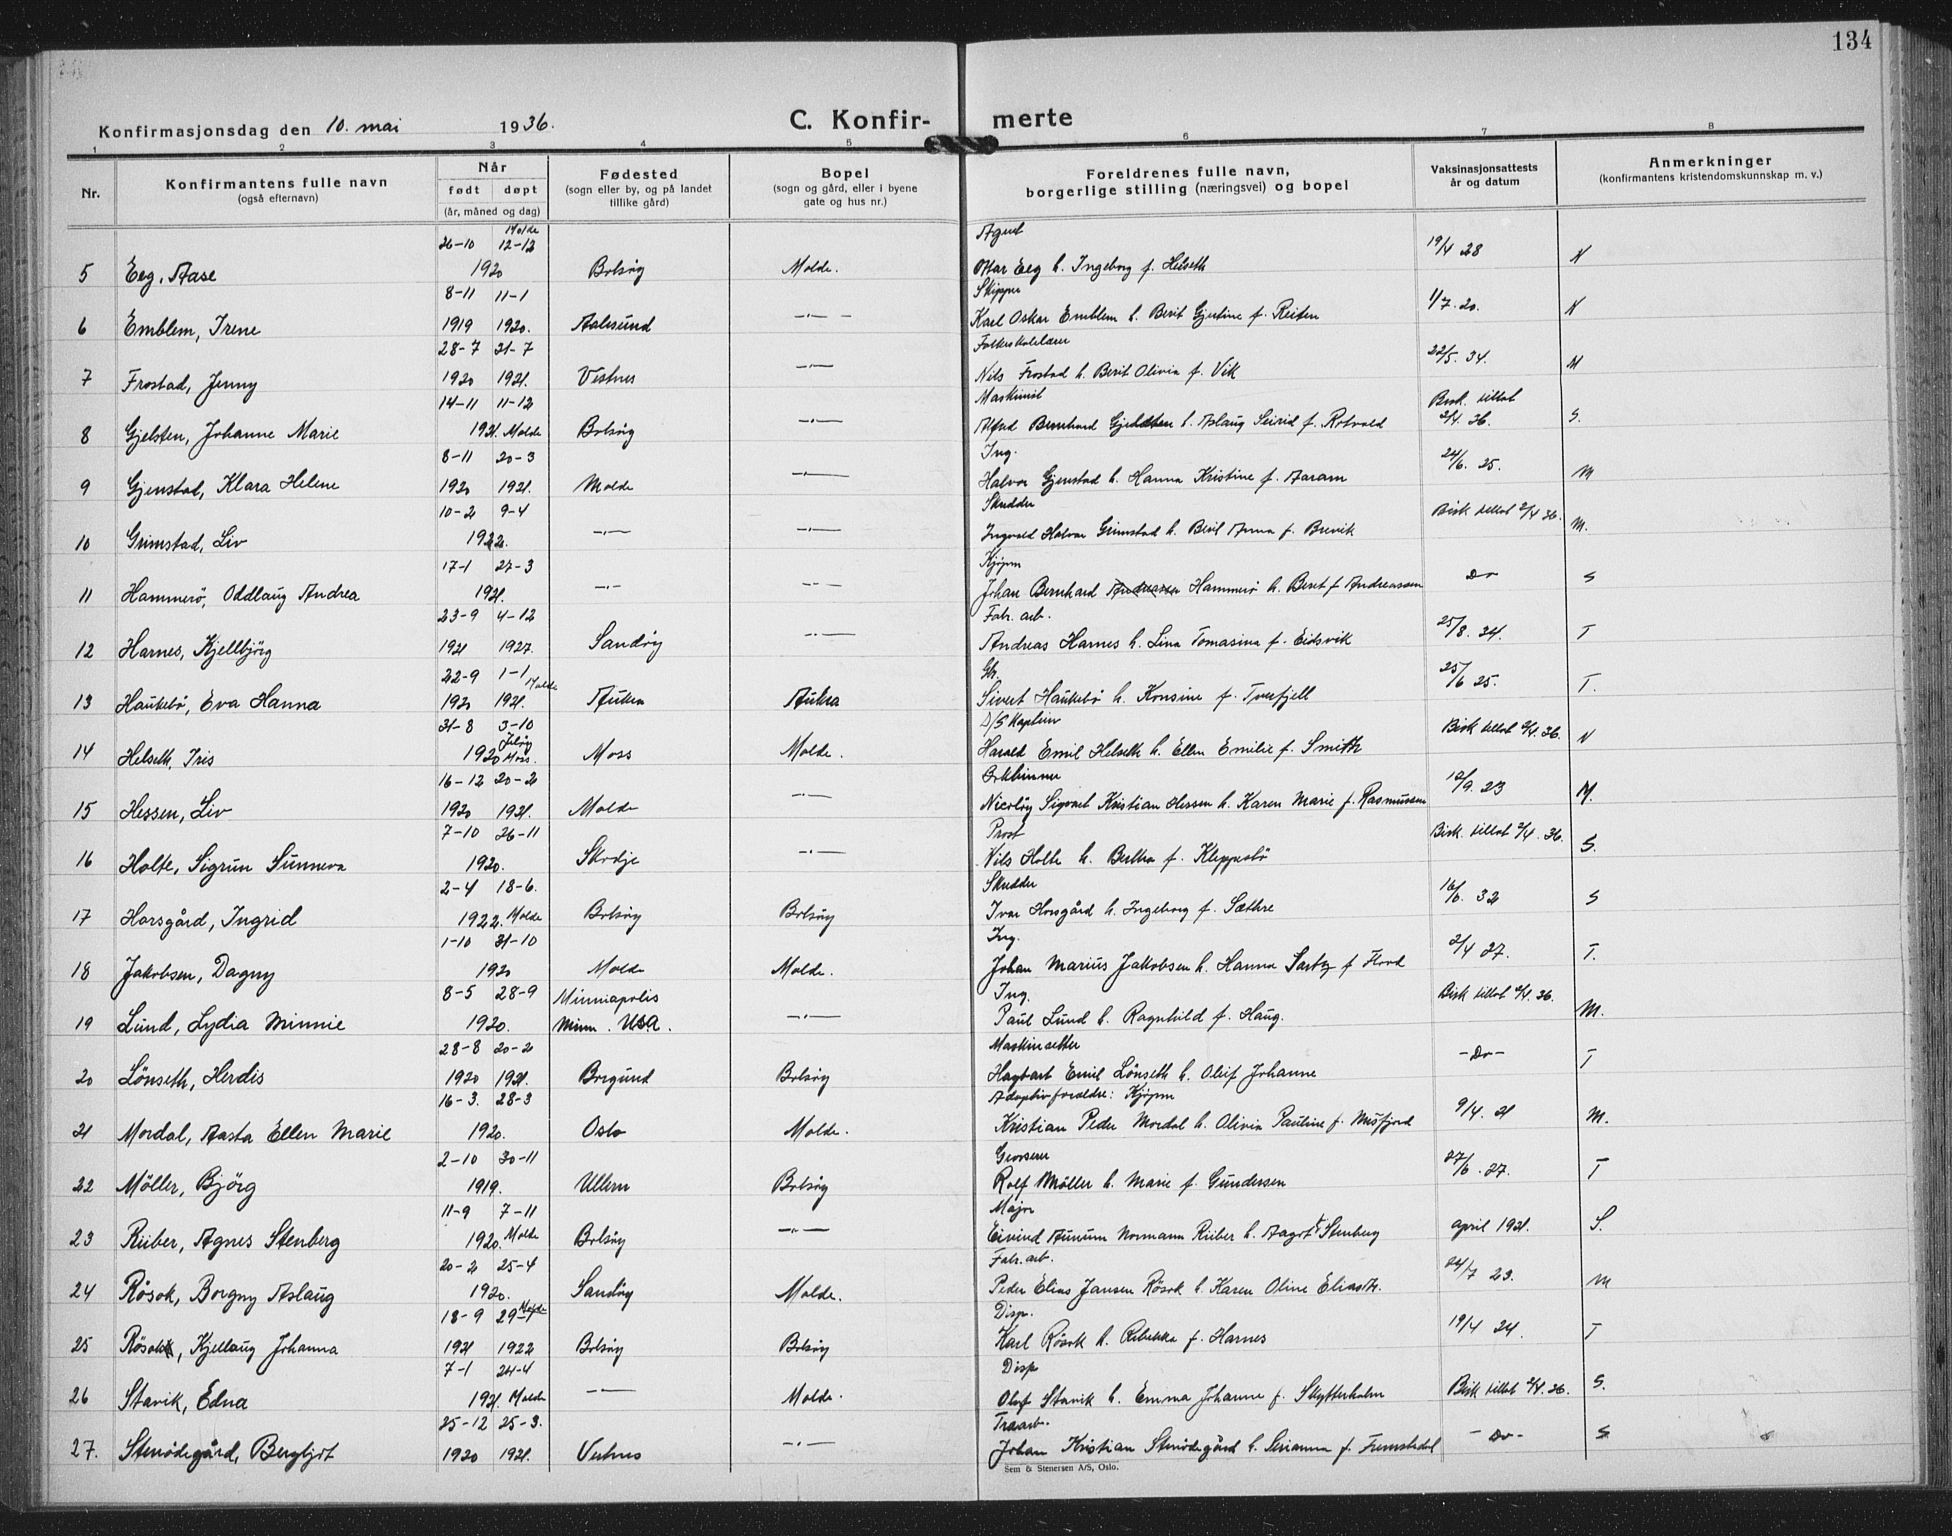 134
Konfirmasjonsdag den 10. mai 1936. C. Konfir- merte
1 2 3 4 5 6 7 8
Nr. Konfirmantens fulle navn (også efternavn) Når født døpt (år, måned og dag) Fødested (sogn eller by, og på landet tillike gård) Bopel (sogn og gård, eller i byene gate og hus nr.) Foreldrenes fulle navn, borgerlige stilling (næringsvei) og bopel Vaksinasjonsattests år og datum Anmerkninger (konfirmantens kristendomskunnskap m. v.)
26-10 Molde 12-12 Agent
5 Eeg, Aase 1920 Bolsøy Molde. Ottar Eeg h. Ingeborg f. Helseth 19/4 28 N
8-11 11-1 Skipper
6 Emblem, Irene 1919 1920. Aalesund -"- Karl Oskar Emblem h. Berit Gjertine f. Reiten 1/7. 20. N
28-7 31-7 Folkeskolelærer
7 Frostad, Jenny 1920 1921. Vestnes -"- Nils Frostad h. Berit Olivia f. Vik 22/5. 34. M
14-11 11-12 Maskinist
8 Gjelsten, Johanne Marie 1921. Molde Bolsøy -"- Alfred Bernhard Gjelsten h. Aslaug Seirid f. Rotvold Bisk. tillat 2/4. 36. S.
8-11 20-3 Ing.
9 Gjenstad, Klara Helene 1920 1921. Molde -"- Halvor Gjenstad h. Hanna Kristine f. Aaram 24/6. 25. M
10-2 9-4 Skredder
10 Grimstad, Liv 1922. -"- -"- Ingvald Halvor Grimstad h. Berit Anna f. Brevik Bisk tillat 2/4 36. M.
17-1 27-3 Kjøpm
11 Hammerø, Oddlaug Andrea 1921. -"- -"- Johan Bernhard Andreassen Hammerø h. Beret f Andreassen Do S
23-9 4-12 Fabr. arb.
12 Harnes, Kjellbjörg 1921 1927. Sandøy -"- Andreas Harnes h. Lina Tomasina f. Eidsvik 25/8. 34. T
22-9 1-1 Molde Gbr.
13 Haukebø, Eva Hanna 1920 1921. Aukra Aukra Sivert Haukebø h. Konsine f. Tverfjell 25/6 25. T.
31-8 3-10 D/S Kaptein
14 Helseth, Iris 1920 Jeløy Moss. Moss Molde. Harald Emil Helseth h. Ellen Emilie f. Smith Bisk tillat 2/4. 36. N
16-12 20-2
15 Hessen, Liv 1920 1921. Molde -"- Nicolay Sigvart Kristian Hessen h. Karen Marie f. Rasmussen 12/9. 23 M.
7-10 26-11 Prost
16 Holte, Sigrun Sunneva 1920. Skodje -"- Nils Holte h. Bertha f. Kleppestø Bisk. tillat 2/4. 36. S.
2-4 18-6. Skredder
17 Horsgård, Ingrid 1922. Molde Bolsøy Bolsøy Ivar Horsgård h. Ingeborg f. Sæthre 16/6. 32 S
1-10 31-10 Ing.
18 Jakobsen, Dagny 1920 Molde Molde. Johan Marius Jakobsen h. Hanna f Hovd 2/4 27. T.
8-5 28-9 Minniapolis Ing.
19 Lund, Lydia Minnie 1920. Minn. USA. -"- Paul Lund h. Ragnhild f. Haug. Bisk tillat 2/4. 36. M.
28-8 20-2 Maskinsetter
20 Lönseth, Herdis 1920 1921. Borgund Bolsøy Hagbart Emil Lönseth h. Oluf Johanne -Do- T
16-3. 28-3 Adoptivforældre: Kjøpm
21 Mordal, Aasta Ellen Marie 1920. Oslo Molde. Kristian Peder Mordal h. Olivia Pauline f. Misfjord 9/4. 21 M.
2-10 30-11 Grosserer
22 Möller, Bjørg 1919. Ullern Bolsøy Rolf Möller h. Marie f. Gundersen 27/6. 27. T
11-9 7-11 Major
23 Riiber, Agnes Stenberg 1920. Molde Bolsøy -"- Eivind Aunum Normann Riiber h. Aagot f. Stenberg april 1921. S.
20-2 25-4 Fabr. arb.
24 Røsok, Borgny Aslaug 1920. Sandøy Molde. Peder Elias Jansen Røsok h. Karen Oline Eliasdt. 24/7 23. M
18-9 29-1 Molde Disp.
25 Røsok, Kjellaug Johanna 1921 1922 Bolsøy Bolsøy Karl Røsok h. Rebekka f. Harnes 19/4 24. T
7-1 24-4 Disp
26 Stavik, Edna 1921. Molde -"- Molde. Oluf Stavik h. Emma Johanne f. Skytterholm Bisk tillat 2/4. 36. S.
25-12 25-3. Traarb.
27. Stenødegård, Bergljot 1920 1921. Vestnes -"- Johan Kristian Stenødegård h. Serianna f. Fremstedal - Do - S
Sem & Stenersen A/S, Oslo.